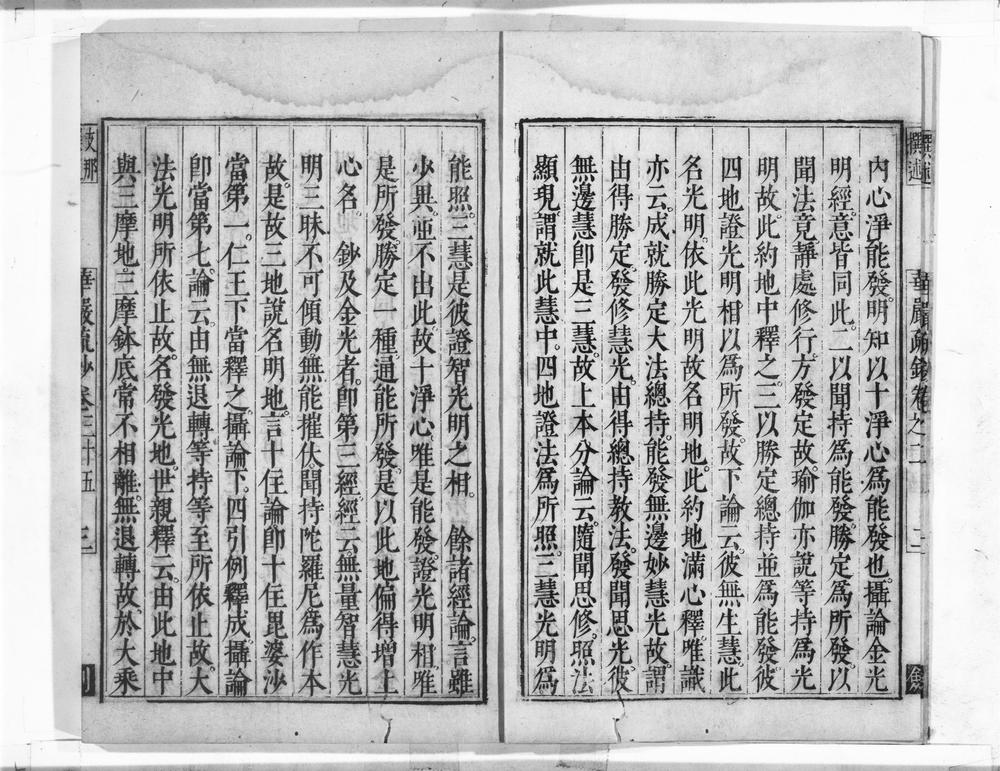 撰述
華嚴疏鈔卷之二
內心淨能發明知以十淨心爲能發也攝論金光
明經意皆同此二以聞持爲能發勝定爲所發以
聞法竟靜處修行方發定故瑜伽亦說等持爲光
明故此約地中釋之三以勝定總持並爲能發彼
四地證光明相以爲所發故下論云彼無生慧此
名光明依此光明故名明地此約地滿心釋唯識
亦云成就勝定大法總持能發無邊妙慧光故謂
由得勝定發修慧光由得總持教法發聞思光彼
無邊慧卽是三慧故上本分論云隨聞思修照法
顯現謂就此慧中四地證法爲所照三慧光明爲
能照三慧是彼證智光明之相 餘諸經論言雖
少異並不出此故十淨心唯是能發證光明相唯
是所發勝定一種通能所發是以此地偏得增上
心名 鈔及金光者卽第三經經云無量智慧光
明三昧不可傾動無能摧伏聞持陀羅尼爲作本
故是故三地說名明地言十住論卽十住毘婆沙
當第一仁王下當釋之攝論下四引例釋成攝論
卽當第七論云由無退轉等持等至所依止故大
法光明所依止故名發光地世親釋云由此地中
與三摩地三摩鉢底常不相離無退轉故於大乘
支那
華嚴疏鈔卷三十五
三